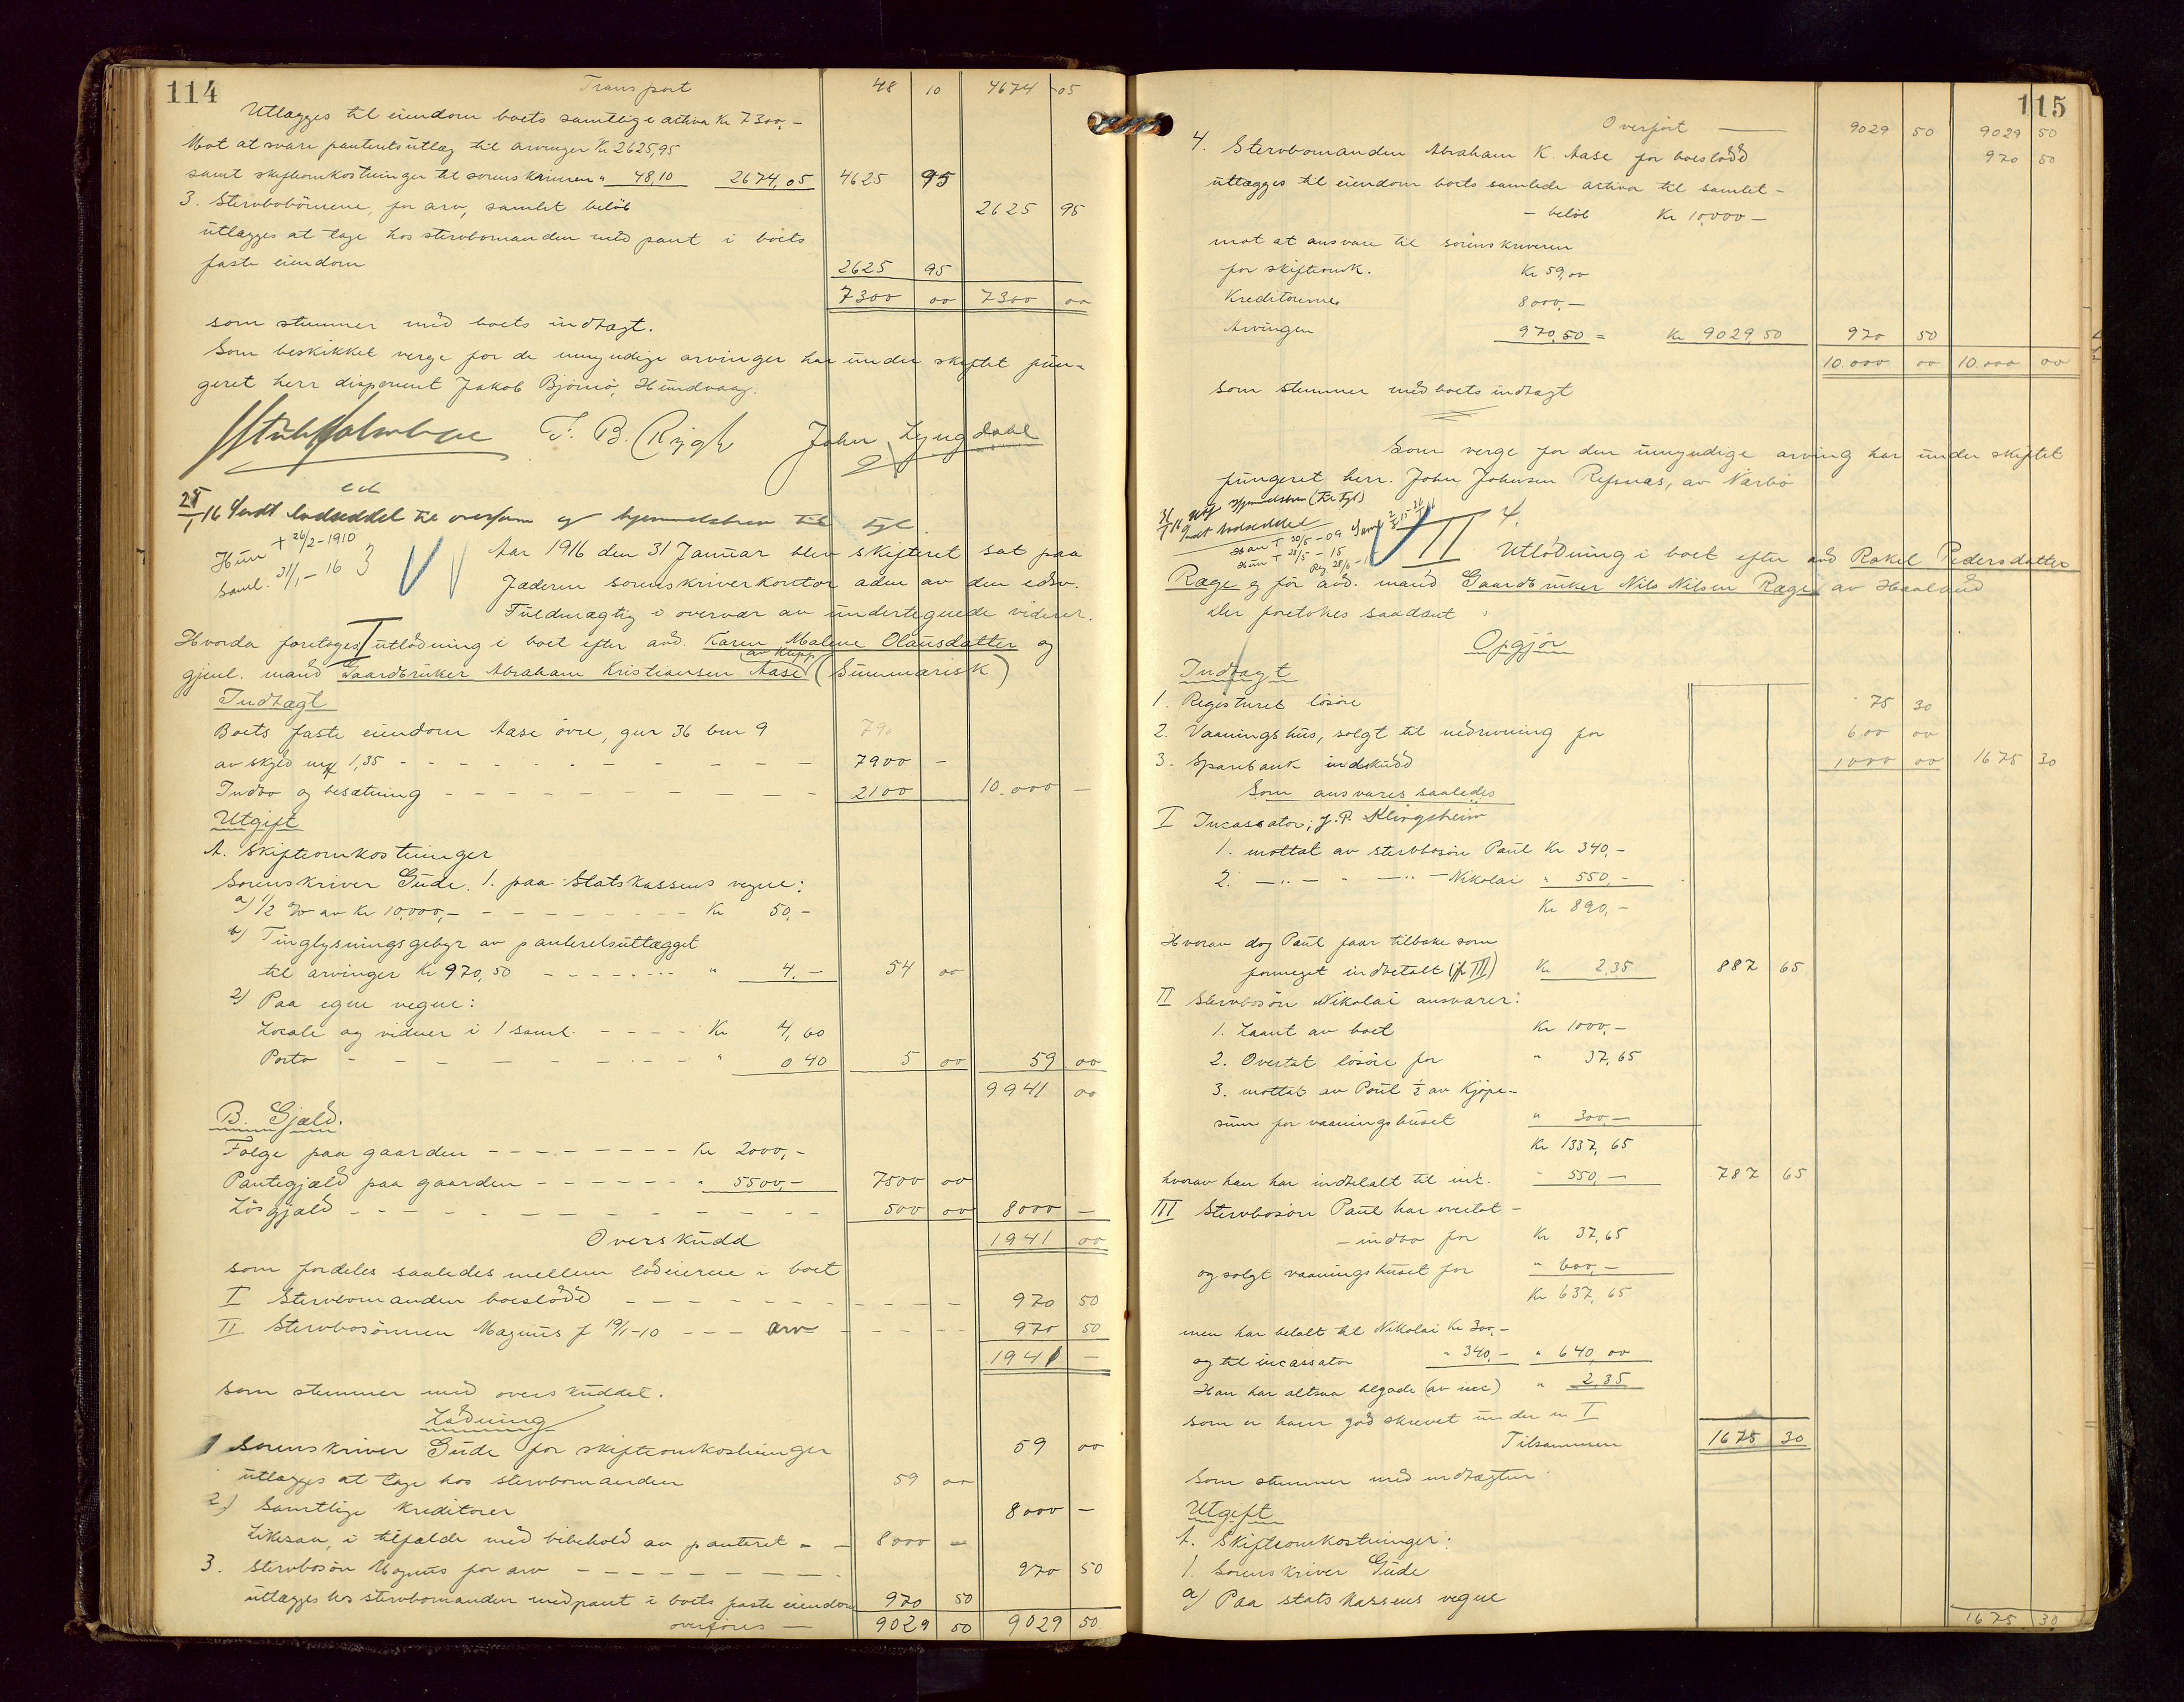 114
Transport 48 10 4674 05
Utlægges til eiendom boets samtlige activa Kr 7300,-
Mot at svare panteretsutlæg til arvinger Kr 2625,95
samt skifteomkostninger til sorenskriveren " 48,10 2674,05 4625 95
3. Stervbobörnene, for arv, samlet belöb 2625 95
utlægges at tage hos stervbomanden med pant i boets
faste eiendom 2625 95
7300 00 7300 00
som stemmer med boets indtægt.
Som beskikket verge for de umyndige arvinger har under skiftet fun-
geret herr disponent Jakob Björnö, Hundvaag.
F. B. Rygh John Lyngdahl
25/1 16 Sendt lodseddel til overform og hjemmelsbrev til tgl.
Hun + 26/2-1910
Saml. 31/1-16 3
Aar 1916 den 31 Januar blev skifteret sat paa
Jæderen sorenskriverkontor aden av den edsv.
Fuldmægtig i overvær av undertegnede vidner.
Hvorda foretoges I utlodning i boet efter avd. Karen Malene Olausdatter og
gjenl. mand Gaardbruker Abraham Kristiansen Aase av Klepp (Summarisk)
Indtægt
Boets faste eiendom Aase övre, gnr 36 bnr 9 790
av skyld mrk 1,35 - - - - 7900 -
Indbo og besætning - - - - 2100 10.000 -
Utgift
A. Skifteomkostninger
Sorenskriver Gude. 1. paa Statskassens vegne:
a) 1/2 % av Kr 10,000,- - - - - Kr 50,-
b) Tinglysningsgebyr av panteretsutlægget
til arvinger Kr 970,50 - - - - " 4,- 54 00
2) Paa egne vegne:
Locale og vidner i 1 saml. - - - - Kr 4,60
Porto - - - - " 0 40 5 00 59 00
9941 00
B. Gjæld.
Følge paa gaarden - - - - Kr 2000,-
Pantegjæld paa gaarden - - - - " 5500,- 7500 00
Lösgjæld - - - - 500 00 8000 -
Overskudd 1941 00
som fordeles saaledes mellem lodeierne i boet
I Stervbomanden boeslodd - - - - 970 50
II Stervbosönnen Magnus f 19/1-10 - - - arv - - - 970 50
1941 -
som stemmer med overskuddet.
Lodning
1 Sorenskriver Gude for skifteomkostninger 59 00
utlægges at tage hos stervbomanden 59 00
2) Samtlige kreditorer 8000 -
Likesaa, i tilfælde med bibehold av panteret - - 8000 -
3. Stervbosön Magnus for arv - - - - 970 50
utlægges hos stervbomanden med pant i boets faste eiendom 970 50
overföres - 9029 50 9029 50
115
Overfört - 9029 50 9029 50
4. Stervbomanden Abraham K. Aase for boeslodd 970 50
utlægges til eiendom boets samlede activa til samlet -
- belöb Kr 10,000 -
mot at ansvare til sorenskriveren
for skifteomk. Kr 59,00
Kreditorerne 8000,-
Arvingen 970,50 = Kr 9029,50 970 50
10.000 00 10.000 00
som stemmer med boets indtægt
Som verge for den umyndige arving har under skiftet
fungeret herr. John Johnsen Refsnas, av Narbö
31/1 16 Utf hjemmelsbrev (til tgl)
Sendt lodseddel
Han + 30/5-09
Hun + 28/5-15
Reg 28/6-
4.
II Utlodning i boet efter avd Rakel Pedersdatter
Ræge og för avd. mand Gaardbruker Nils Nilsen Ræge av Haaland
der foretokes saadant
Opgjör
Indtægt
1. Registeret lösöre 75 30
2. Vaaningshus, solgt til nedrivning for 600 00
3. Sparebank indskudd 1000 00 1675 30
Som ansvares saaledes
I Incassator, J. P. Klingsheim
1. mottat av stervbosön Paul Kr 340,-
2. -"- " -"- Nikolai " 550,-
Kr 890,-
Hvorav dog Paul faar tilbake som
formeget indbetalt (jfr III) Kr 2,35 887 65
II Stervbosön Nikolai ansvarer:
1. Laant av boet Kr 1000,-
2. Overtat lösöre for " 37,65
3. mottat av Paul 1/2 av Kjöpe-
sum for vaaningshuset " 300,-
Kr 1337,65
hvorav han har indbetalt til inc. " 550,- 787 65
III Stervbosön Paul har overtat -
- indbo for Kr 37,65
og solgt vaaningshuset for " 600,-
Kr 637,65
men har betalt til Nikolai Kr 300,-
og til incassator " 340,- " 640,00
Han har altsaa tilgode (av inc) " 2,35
som er ham godskrevet under n I
Tilsammen 1675 30
Som stemmer med indtægten.
Utgift
A. Skifteomkostninger:
1. Sorenskriver Gude
a) Paa statskassens vegne
1675 30